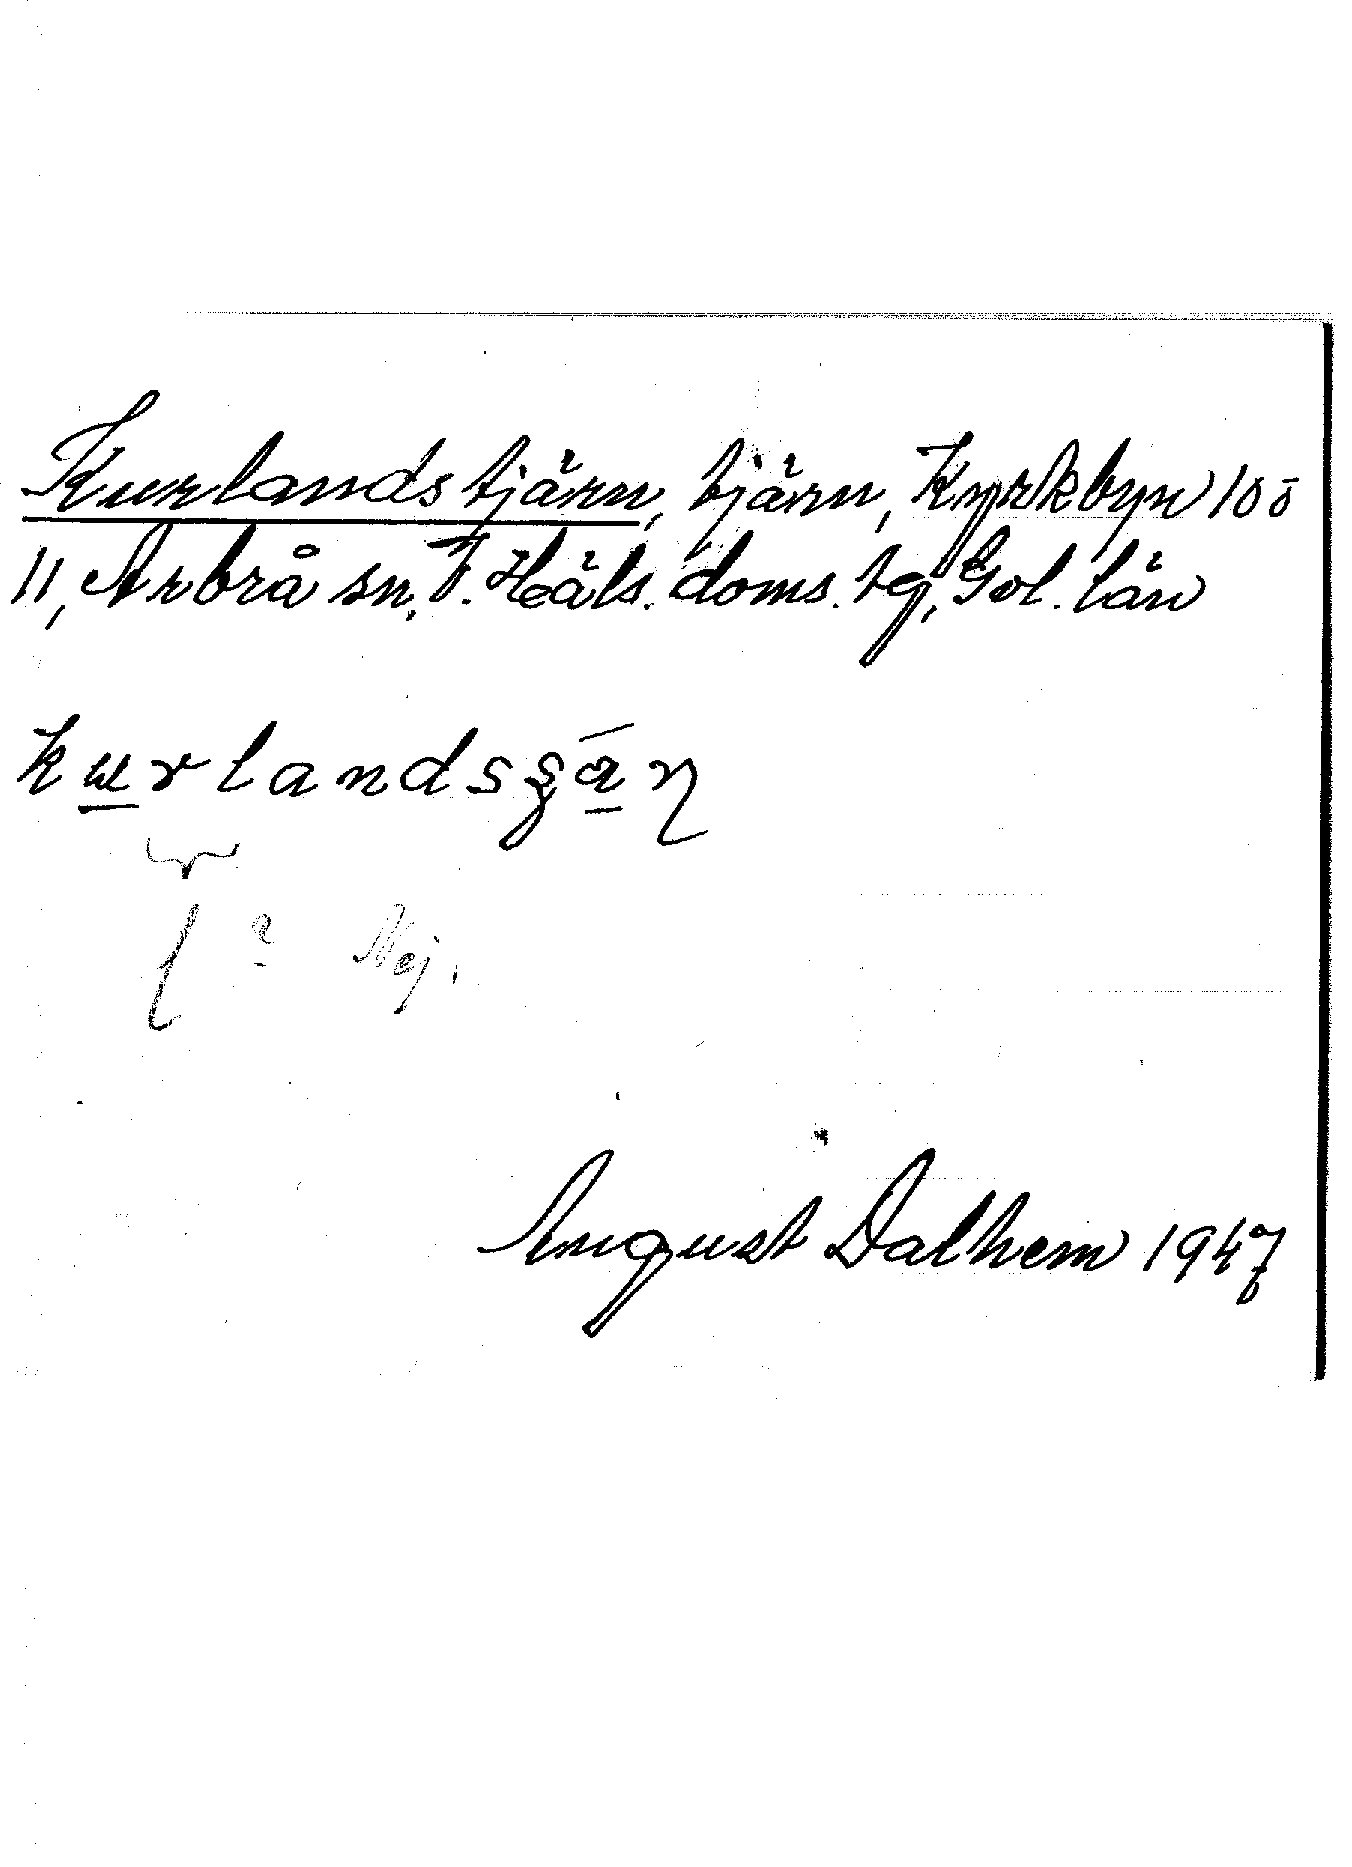 Kurlandstjärn, tjärn, Kyrkbyn 10 o
11, Arbrå sn, V. Häls. doms. tg, Gol. län
kurlands
? Nej.
August Dalhem 1947